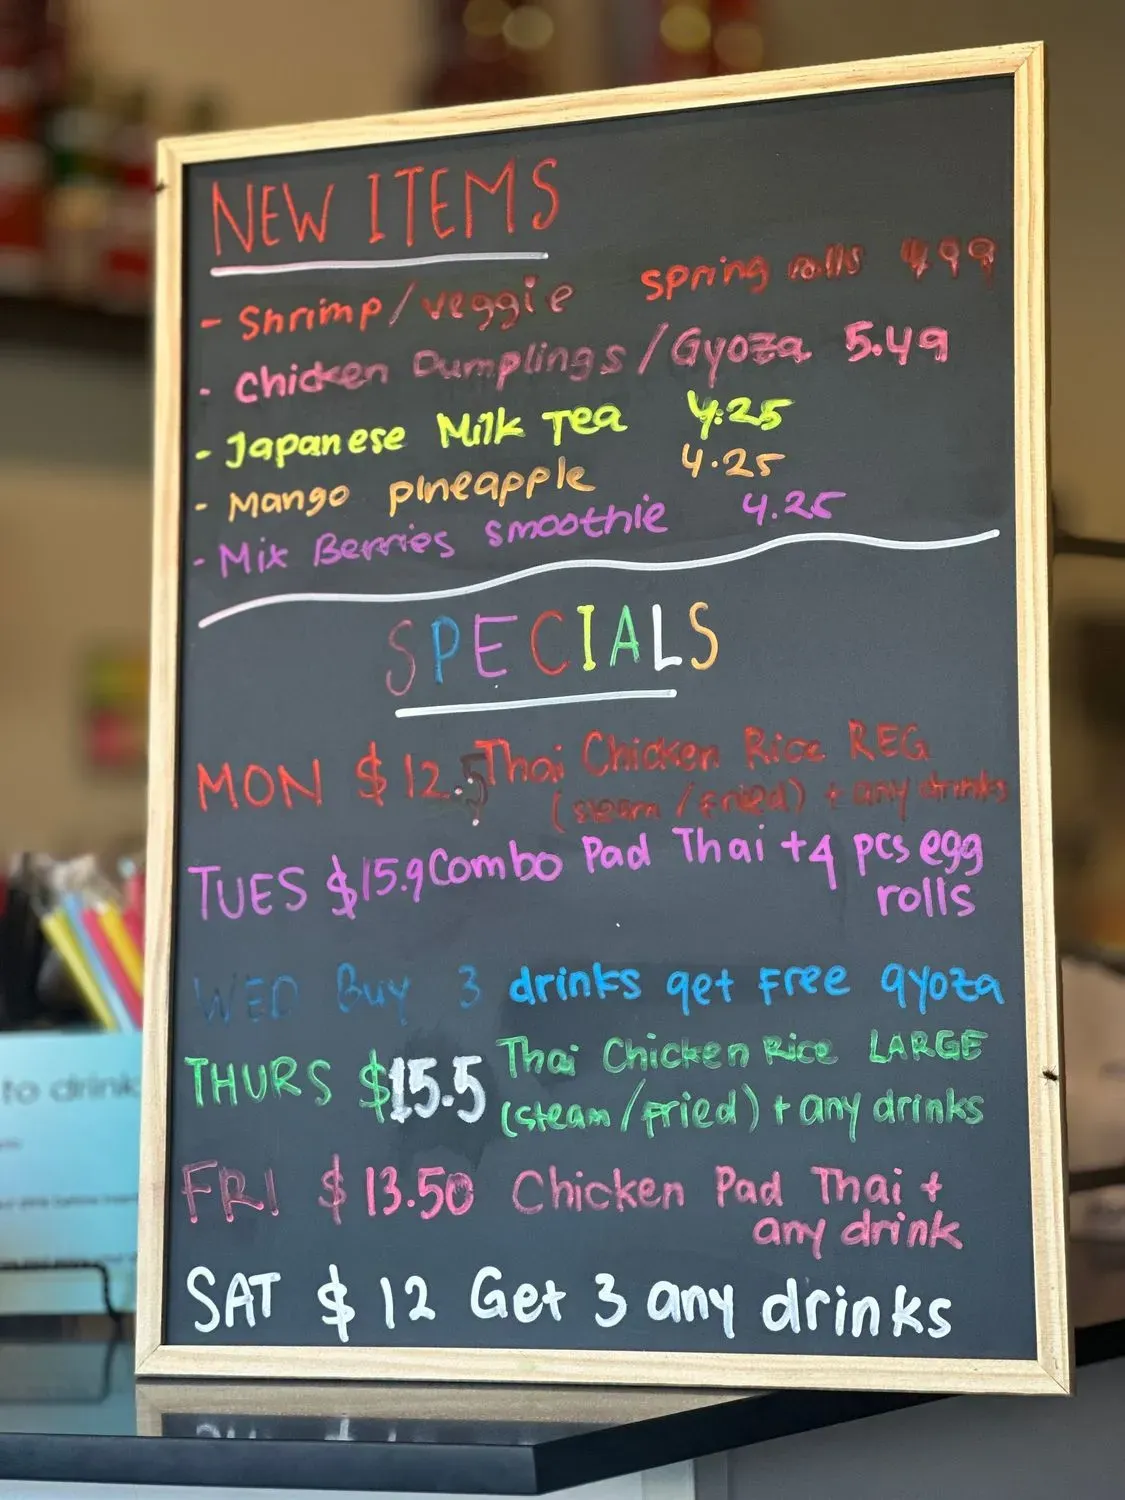 NEW ITEMS
- Shrimp/veggie spring rolls 4.99
- Chicken Dumplings/Gyoza 5.49
- Japanese Milk Tea 4.25
- Mango pineapple 4.25
- Mix Berries smoothie 4.25
SPECIALS
MON $12.5 Thai Chicken Rice REG
(steam/fried) + any drinks
TUES $15.9 Combo Pad Thai + 4 pcs egg
rolls
WED Buy 3 drinks get Free gyoza
THURS $15.5 Thai Chicken Rice LARGE
(steam/fried) + any drinks
FRI $13.50 Chicken Pad Thai +
any drink
SAT $12 Get 3 any drinks
to drink